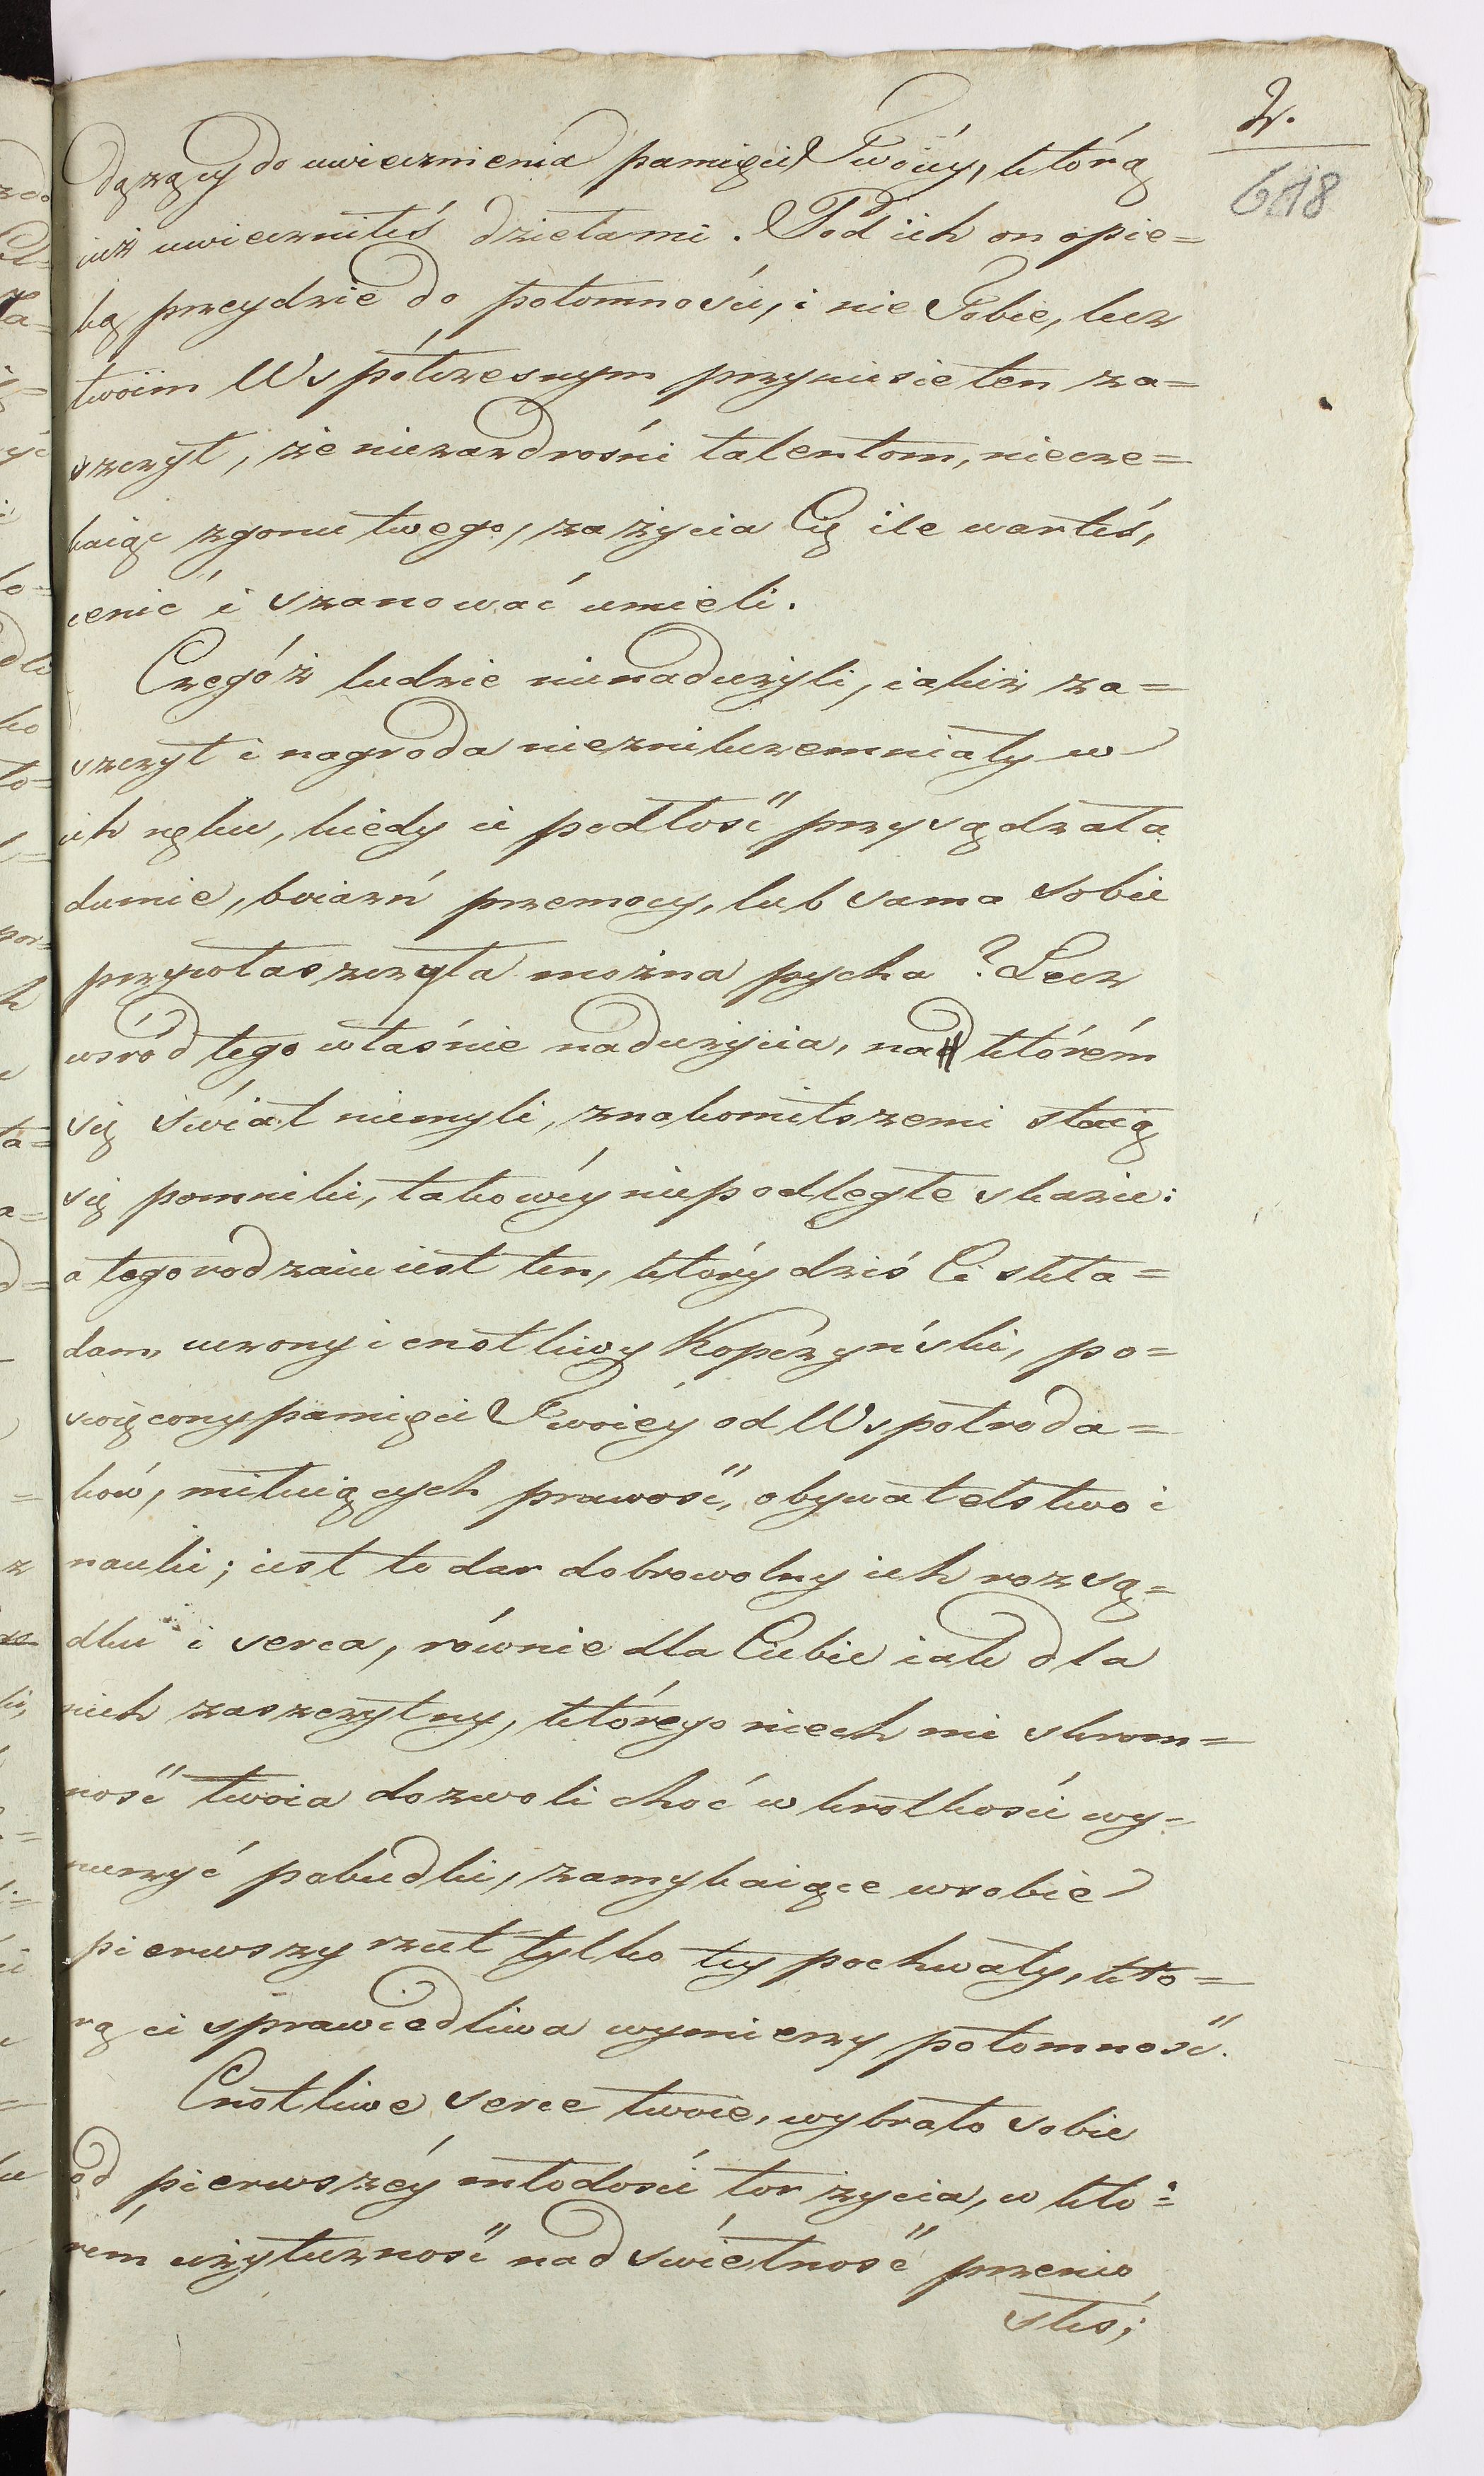 2.
618
dązący do uwiecznienia pamięci Twoiéy, którą
iuż uwieczniłeś dziełami. Pod ich on opie=
ką przeydzie do potomności, i nie Tobie, lecz
twoim Współczesnym przyniesie ten za=
szczyt, że niezazdrośni talentom, niecze=
kaiąc zgonu twego, za życia Cię ile wartés,
cenić i szanować umieli.
Czegóż ludzie nienadużyli, iakiż za=
szczyt i nagroda nieznikczemniały w
ich ręku, kiedy ie podłość przysądzała
dumie, boiaźń przemocy, lub sama sobie
przywłaszczyła można pycha? Lecz
wśród tego właśnie nadużycia, nad którém
się świat niemyli, znakomitszemi staią
się pomniki, takowéy niepodległe skazie:
a tego rodzaiu iest ten, który dziś Ci skła=
dam, uczony i cnotliwy Kopczyński, po=
święcony pamięci Twoiéy od Wspołroda=
ków, miłuiących prawość, obywatelstwo i
nauki; iest to dar dobrowolny ich rozsą=
dku i serca, równie dla Ciebie iak dla
nich zaszczytny, którego niech mi skrom=
ność twoia dozwoli choć w krotkości wy=
nurzyć pobudki, zamykaiące w sobie
pierwszy rzut tylko téy pochwały, któ=
rą ci sprawiedliwa wymierzy potomność.
Cnotliwe serce twoie, wybrało sobie
od pierwszéy młodości tor życia, w któ=
rém użyteczność nad świetność przenio
słeś;